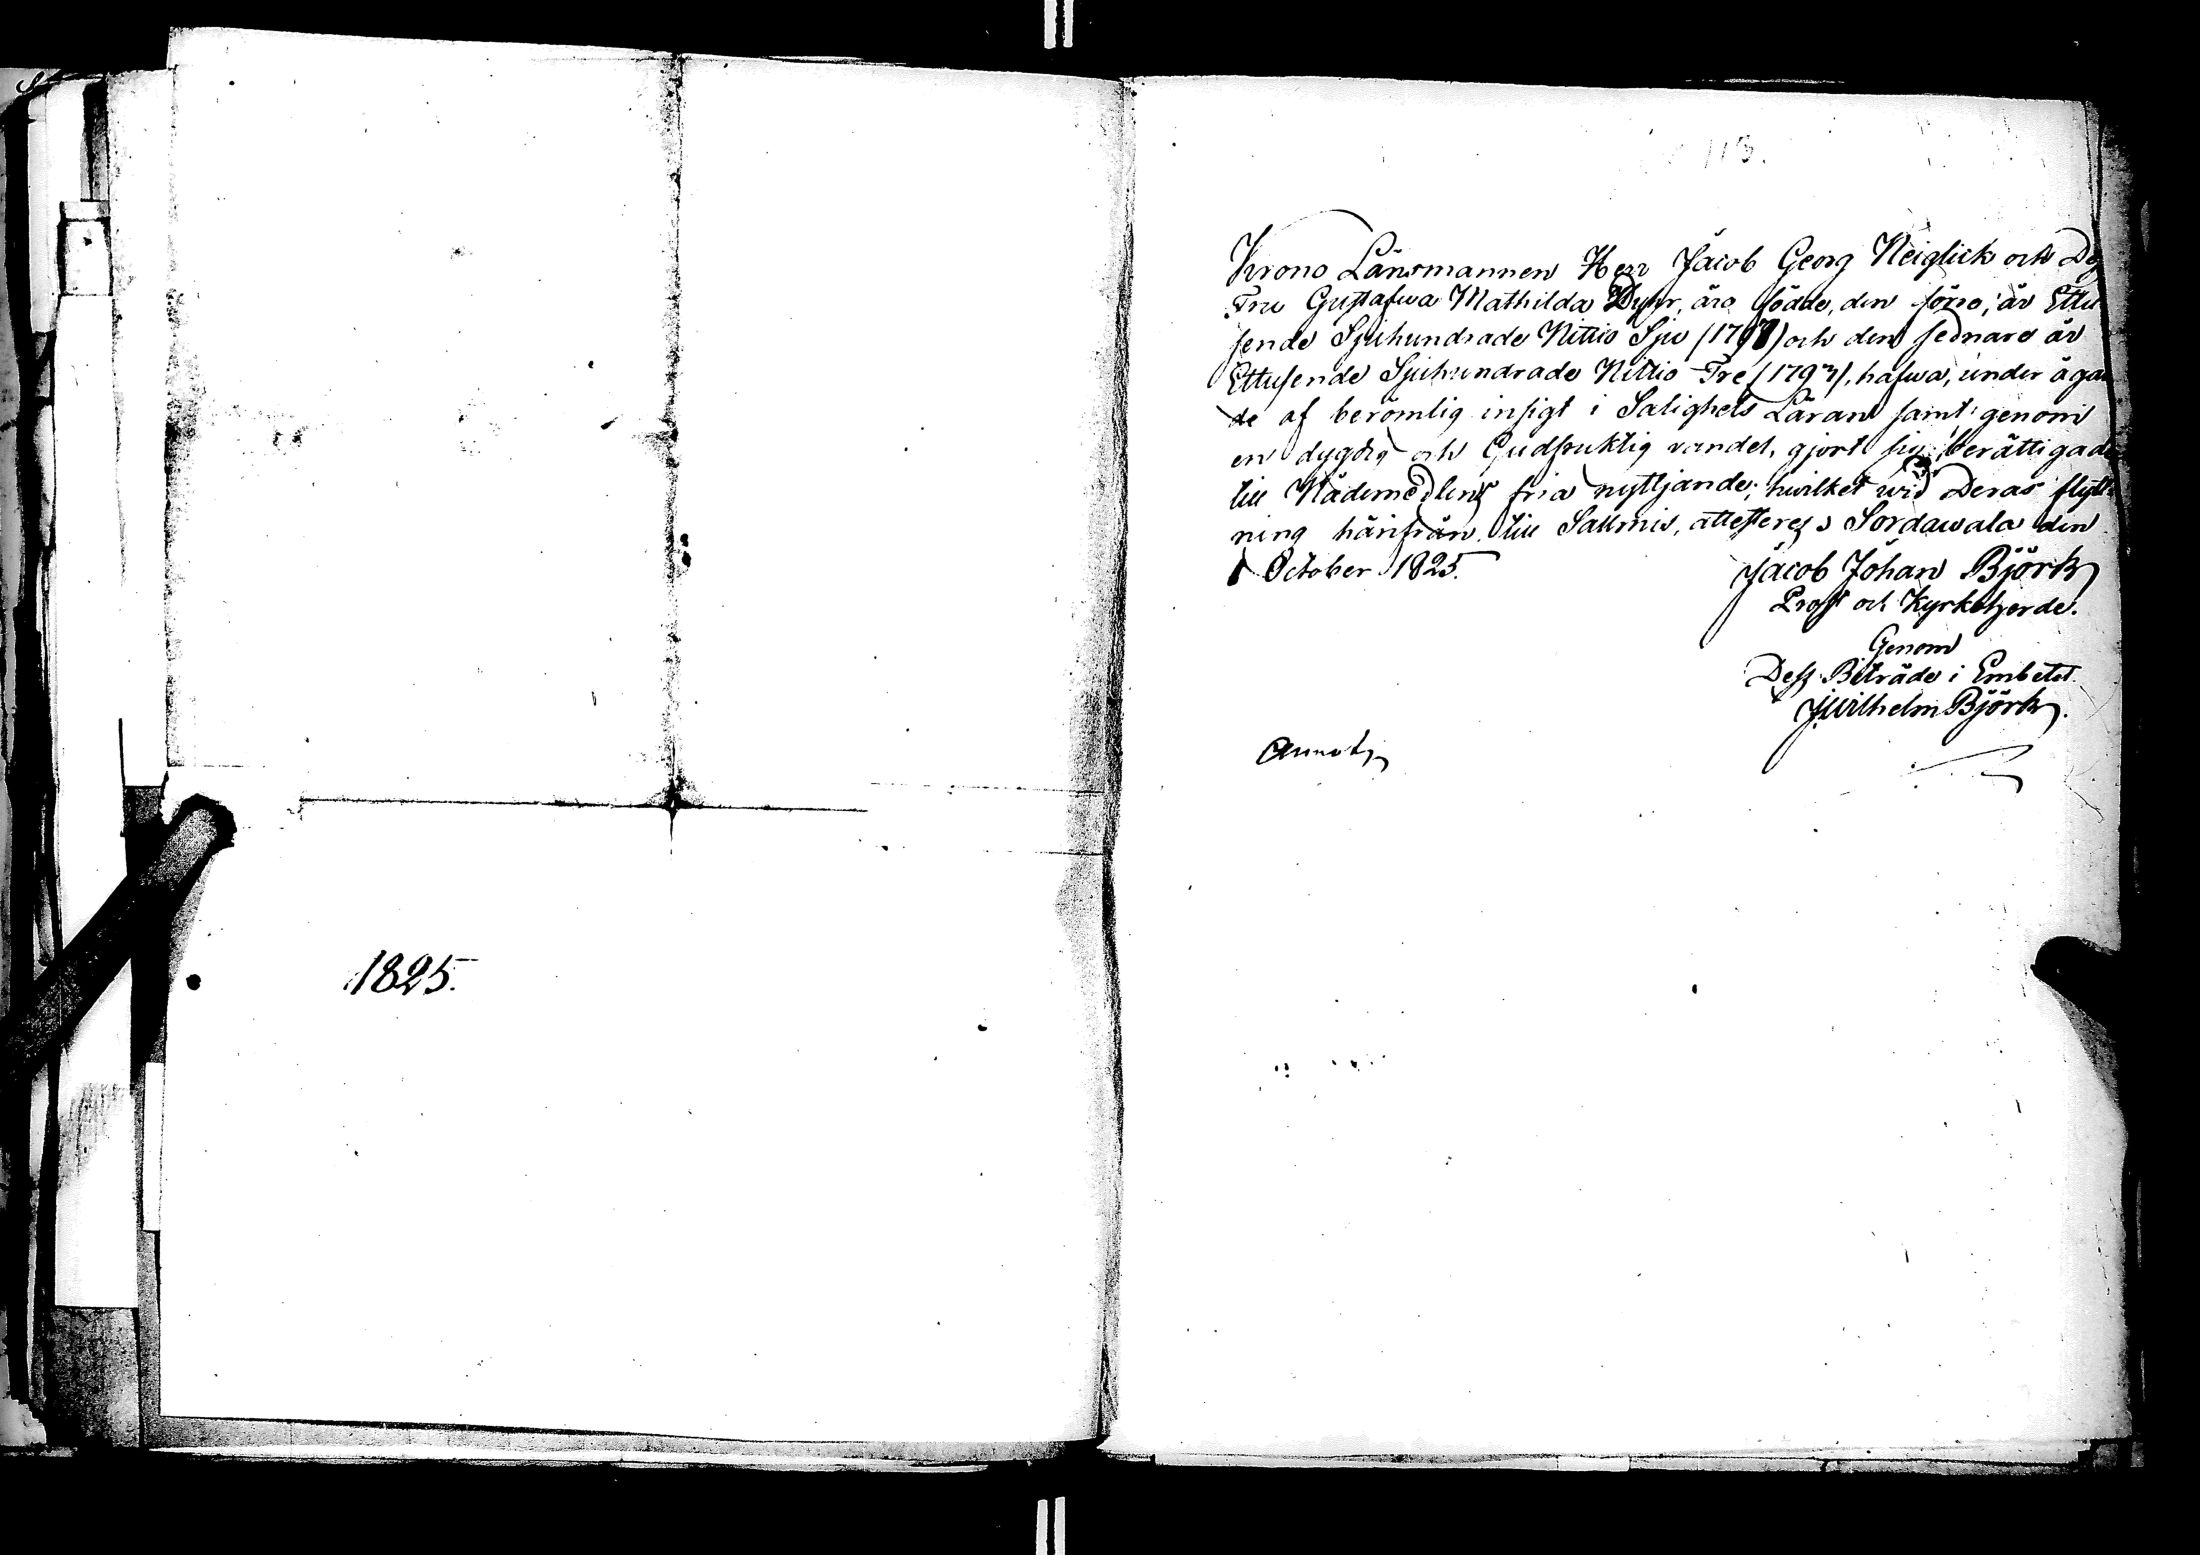 1825.
113.
Krono Länsmannen Herr Jacob Georg Neiglick och De
Fru Gustafwa Mathilda Duhr, äro födde, den förre, år Ettu
sende Sjuhundrade Nittio Sju (1797) och den sednare år
Ettusende Sjuhundrade Nittio Tre (1793), hafwa, under ägan
de af berömlig insigt i Salighets Läran samt genom
en dygdig och Gudfruktig vandel, gjort sig berättigade
till Nådemedlens fria nyttjande; hwilket wid Deras flytt
ning härifrån till Sallmis, attesteres; Sordawala den
1 October 1825.
Jacob Johan Björk
Prost och Kyrkoherde.
Genom
Dess Biträde i Embetet.
J. Wilhelm Björk.
Annot.